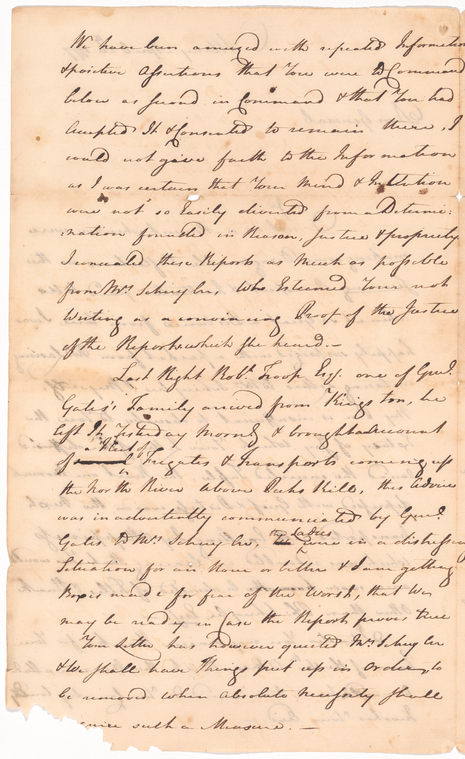 We have been amuzed with repeated Information
& positive Assertions that Your were to Command
below as second in Command & that You had
Accepted It & Consented to remain there, I
could not give faith to the Information
as I was certain that Your Mind & Intention
were not so Easily diverted from a Determi-
:nation founded in Reason, Justice & propriety
I concealed these Reports as Much as possible
from Mrs Schuyler Who Esteemed Your not
Writing as a convincing Proof of the Justice
of the Reports which she heard. —
Last Night Robt. Troop Esqr. one of Genl.
Gates's Family arrived from Kingston, he
left It Yesterday Morng & brought Account
of a Fleet of Frigates & transports coming up
the North River above Peeks Kill, this Advice
was inadvertently communicated by Genl.
Gates to Mrs Schuyler, the Ladies were in a distressing
Situation for an Hour or better & I am getting
Boxes made for fear of the Worst, that We
may be ready in Case the Report proves true
Your Letter has however quieted Mrs Schuyler
& We shall have Things put up in Order, to
be removed when absolute necessity shall
such a Measure. —